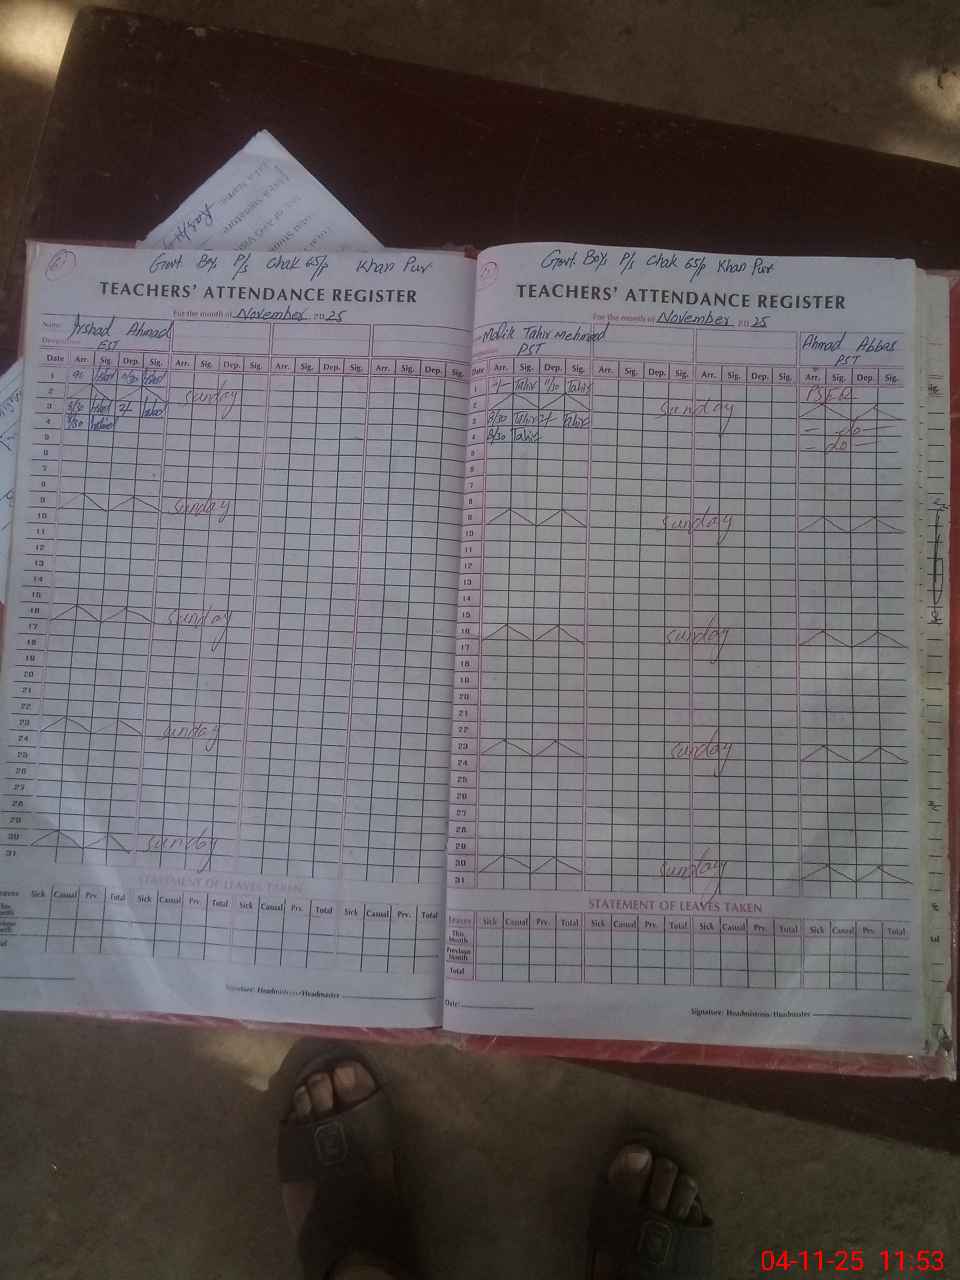 Govt. Boys P/s Chak 65/p Khan Pur
TEACHERS' ATTENDANCE REGISTER
For the month of November 2025
Name: Arshad Ahmad
Designation EST
Date Arr. Sig. Dep. Sig. Arr. Sig. Dep. Sig. Arr. Sig. Dep. Sig. Arr. Sig. Dep. Sig. Arr. Sig. Dep. Sig.
1
2 sunday
3 8/30
4 8/30
5
6
7
8
9 sunday
10
11
12
13
14
15
16 sunday
17
18
19
20
21
22
23 sunday
24
25
26
27
28
29
30 sunday
31
STATEMENT OF LEAVES TAKEN
Leaves Sick Casual Prv. Total Sick Casual Prv. Total Sick Casual Prv. Total Sick Casual Prv. Total
Signature: Headmistress/Headmaster
Govt. Boys P/s Chak 65/p Khan Pur
TEACHERS' ATTENDANCE REGISTER
For the month of November 2025
Malik Tahir Mehmood Ahmad Abbas
PST PST
Date Arr. Sig. Dep. Sig. Arr. Sig. Dep. Sig. Arr. Sig. Dep. Sig. Arr. Sig. Dep. Sig.
1 Tahir 11/30 Tahir
2 sunday
3 8/30 Tahir Tahir - do -
4 8/30 Tahir - do -
5
6
7
8
9 sunday
10
11
12
13
14
15
16 sunday
17
18
19
20
21
22
23 sunday
24
25
26
27
28
29
30 sunday
31
STATEMENT OF LEAVES TAKEN
Leaves Sick Casual Prv. Total Sick Casual Prv. Total Sick Casual Prv. Total Sick Casual Prv. Total
This Month
Previous Month
Total
Date:
Signature: Headmistress/Headmaster
04-11-25 11:53